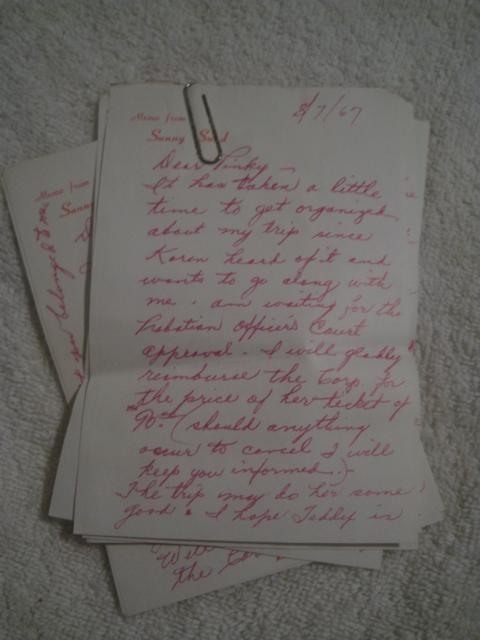 Memo from
Sunny Sund
8/7/67
Dear Pinky —
It has taken a little
time to get organized
about my trip since
Karen heard of it and
wants to go along with
me. am waiting for the
Probation Officer's Court
approval. I will gladly
reimburse the Corp. for
the price of her ticket of
(should anything
occur to cancel I will
keep you informed.)
The trip may do her some
good. I hope Teddy is
Memo from
Sunny
belonged to me
Will
the